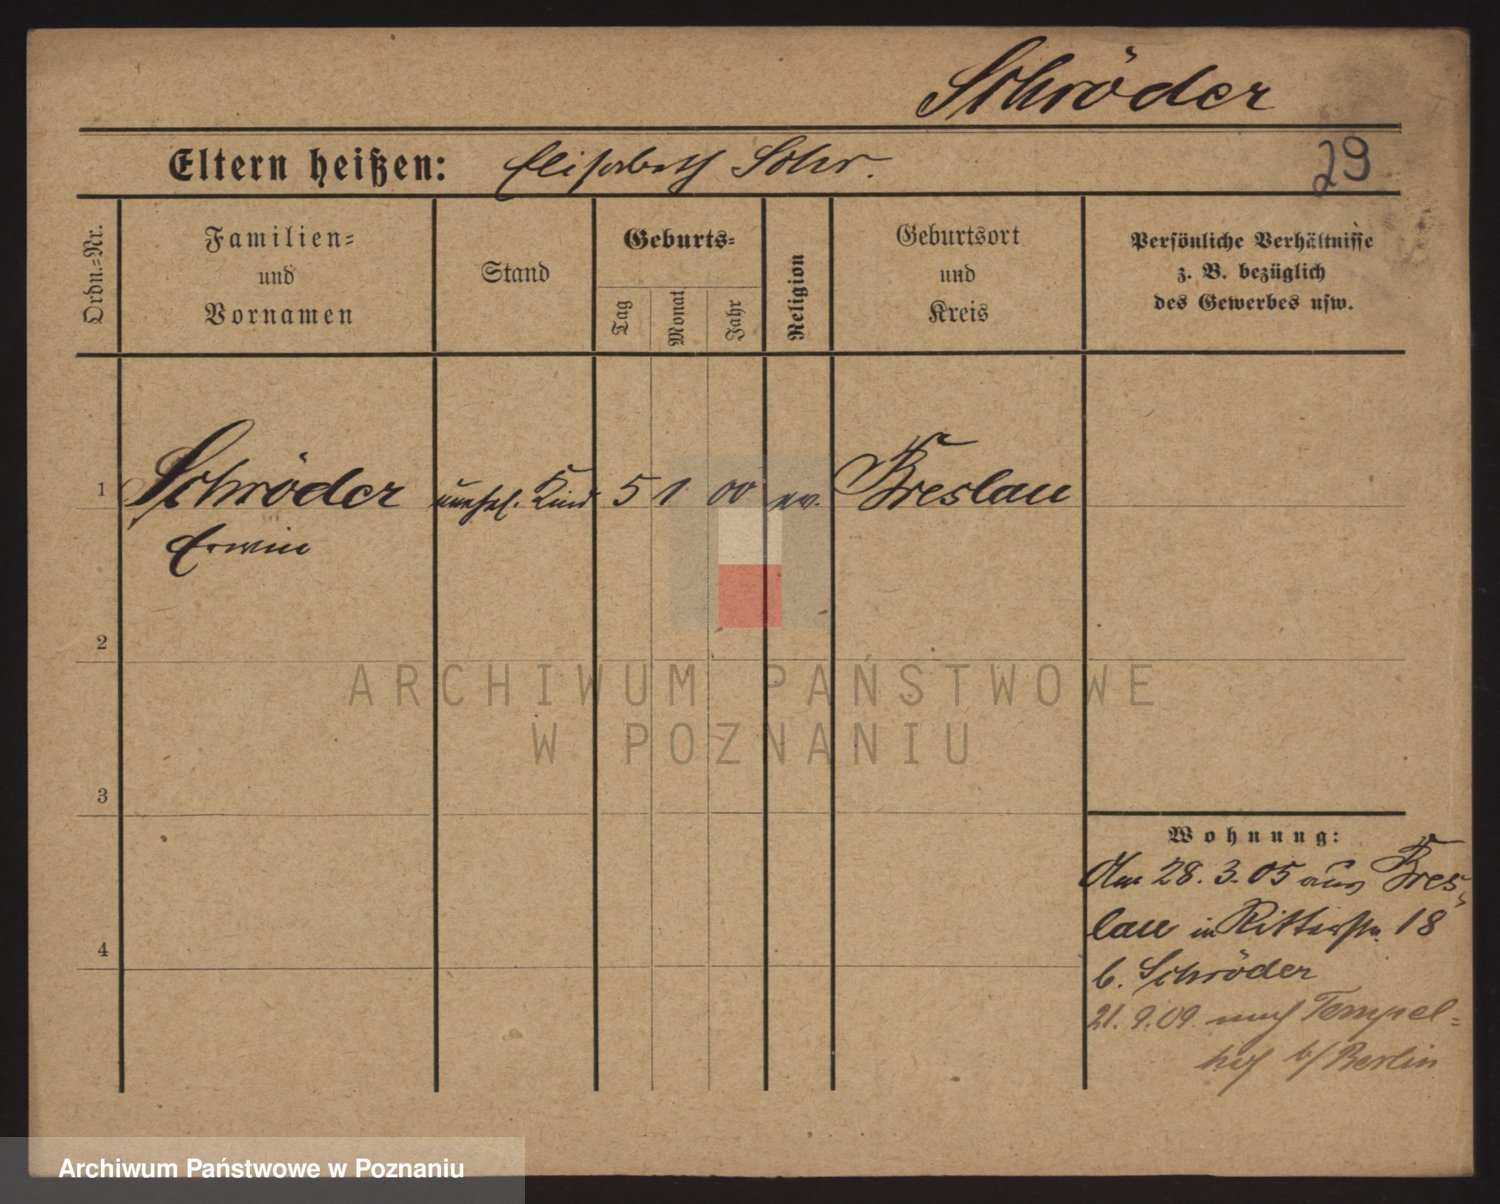 Schröder
Eltern heißen: Elisabeth Schr.
29
Ordn.-Nr.
Familien-
und
Vornamen
Stand
Geburts-
Tag
Monat
Jahr
Religion
Geburtsort
und
Kreis
Persönliche Verhältnisse
z. B. bezüglich
des Gewerbes usw.
1 Schröder unehel. Kind 5 1 00 ev. Breslau
Erwin
2
3
4
Wohnung:
Am 28. 3. 05 aus Bres-
lau in Ritterstr. 18
b. Schröder
21. 9. 09. nach Tempel-
hof b/ Berlin
ARCHIWUM PAŃSTWOWE
W POZNANIU
Archiwum Państwowe w Poznaniu